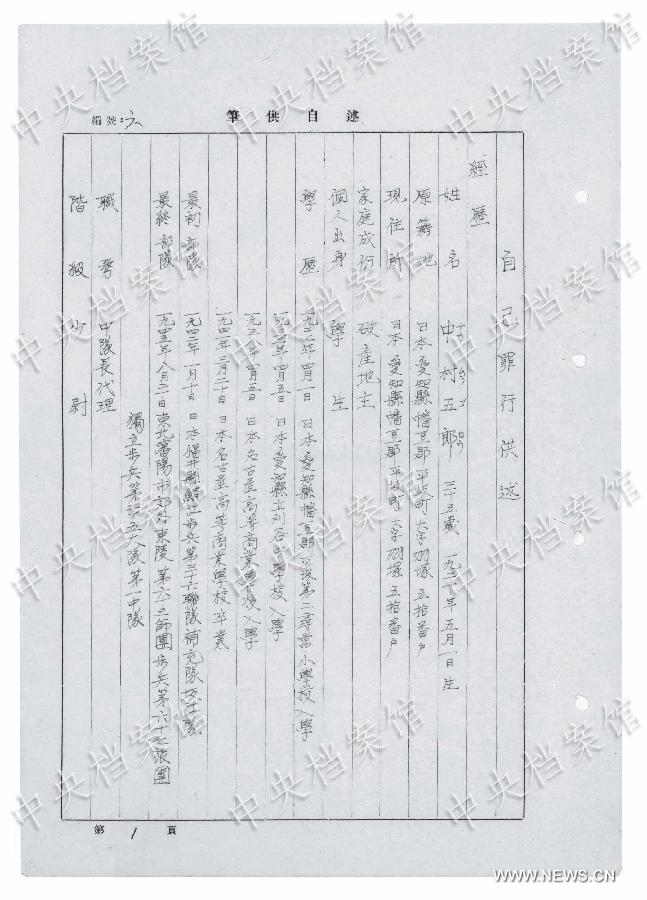 編號:六
述自供筆
自己罪行供述
經歷
姓名 中村五郎 三十五歲 一九二一年五月一日生
ナカ ムラ ゴ ロウ
原籍地 日本愛知縣幡豆郡平坂町大字羽塚五拾番戶
現住所 日本愛知縣幡豆郡平坂町大字羽塚五拾番戶
家庭成份 破產地主
個人出身 學生
學歷 一九 年四月一日 日本愛知縣幡豆郡 第二尋常小學校入學
一九 年四月五日 日本愛知縣立刈谷中學校入學
一九三八年四月五日 日本名古屋高等商業學校入學
一九四一年三月二十日 日本名古屋高等商業學校卒業
最初部隊 一九四二年一月十日 日本福井縣鯖江步兵第三十六聯隊補充隊
最終部隊 一九四五年八月二十日東北瀋陽市郊外東陵第六三師團步兵第六十七旅團
獨立步兵第 大隊第一中隊
職務 中隊長代理
階級 少尉
第 1 頁
中央档案馆
WWW.NEWS.CN